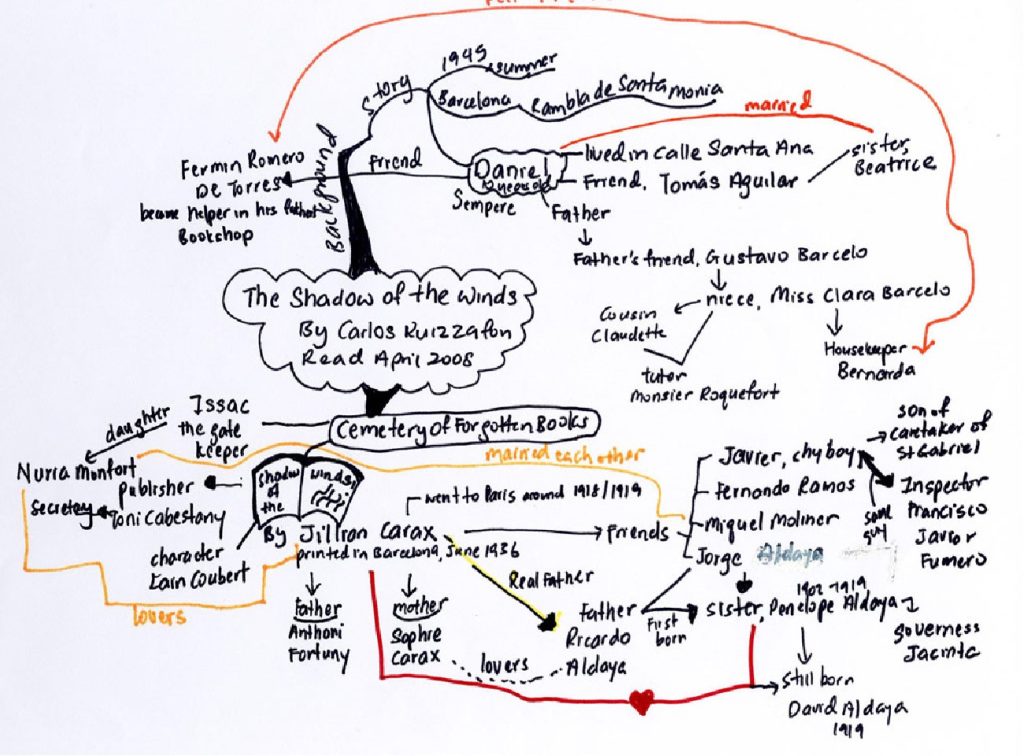 1945 summer
Story
Barcelona Rambla de Santa monia
married
Background
Fermin Romero
De Torres
became helper in his father
Bookshop
Friend
Daniel
Sempere
lived in Calle Santa Ana
Friend, Tomás Aguilar
sister,
Beatrice
Father
Father's friend, Gustavo Barcelo
niece, Miss Clara Barcelo
Cousin
Claudette
tutor
Monsier Roquefort
Housekeeper
Bernarda
The Shadow of the Winds
By Carlos Ruizzafon
Read April 2008
Cemetery of Forgotten Books
Issac
the gate
keeper
daughter
Nuria Monfort
Publisher
Secretary
Toni Cabestany
married each other
Shadow
of
the
winds
By Jillian Carax
printed in Barcelona, June 1936
character
Lain Coubert
lovers
went to Paris around 1918/1919
Friends
Javier, chyboy
Fernando Ramos
Miquel Moliner
Jorge Aldaya
son of
caretaker of
St Gabriel
same
guy
Inspector
Francisco
Javier
Fumero
Father
Anthoni
Fortuny
mother
Sophie
Carax
lovers
Real Father
Father
Ricardo
Aldaya
First
born
1902-1919
Sister, Penelope Aldaya
Governess
Jacinta
Still born
David Aldaya
1919